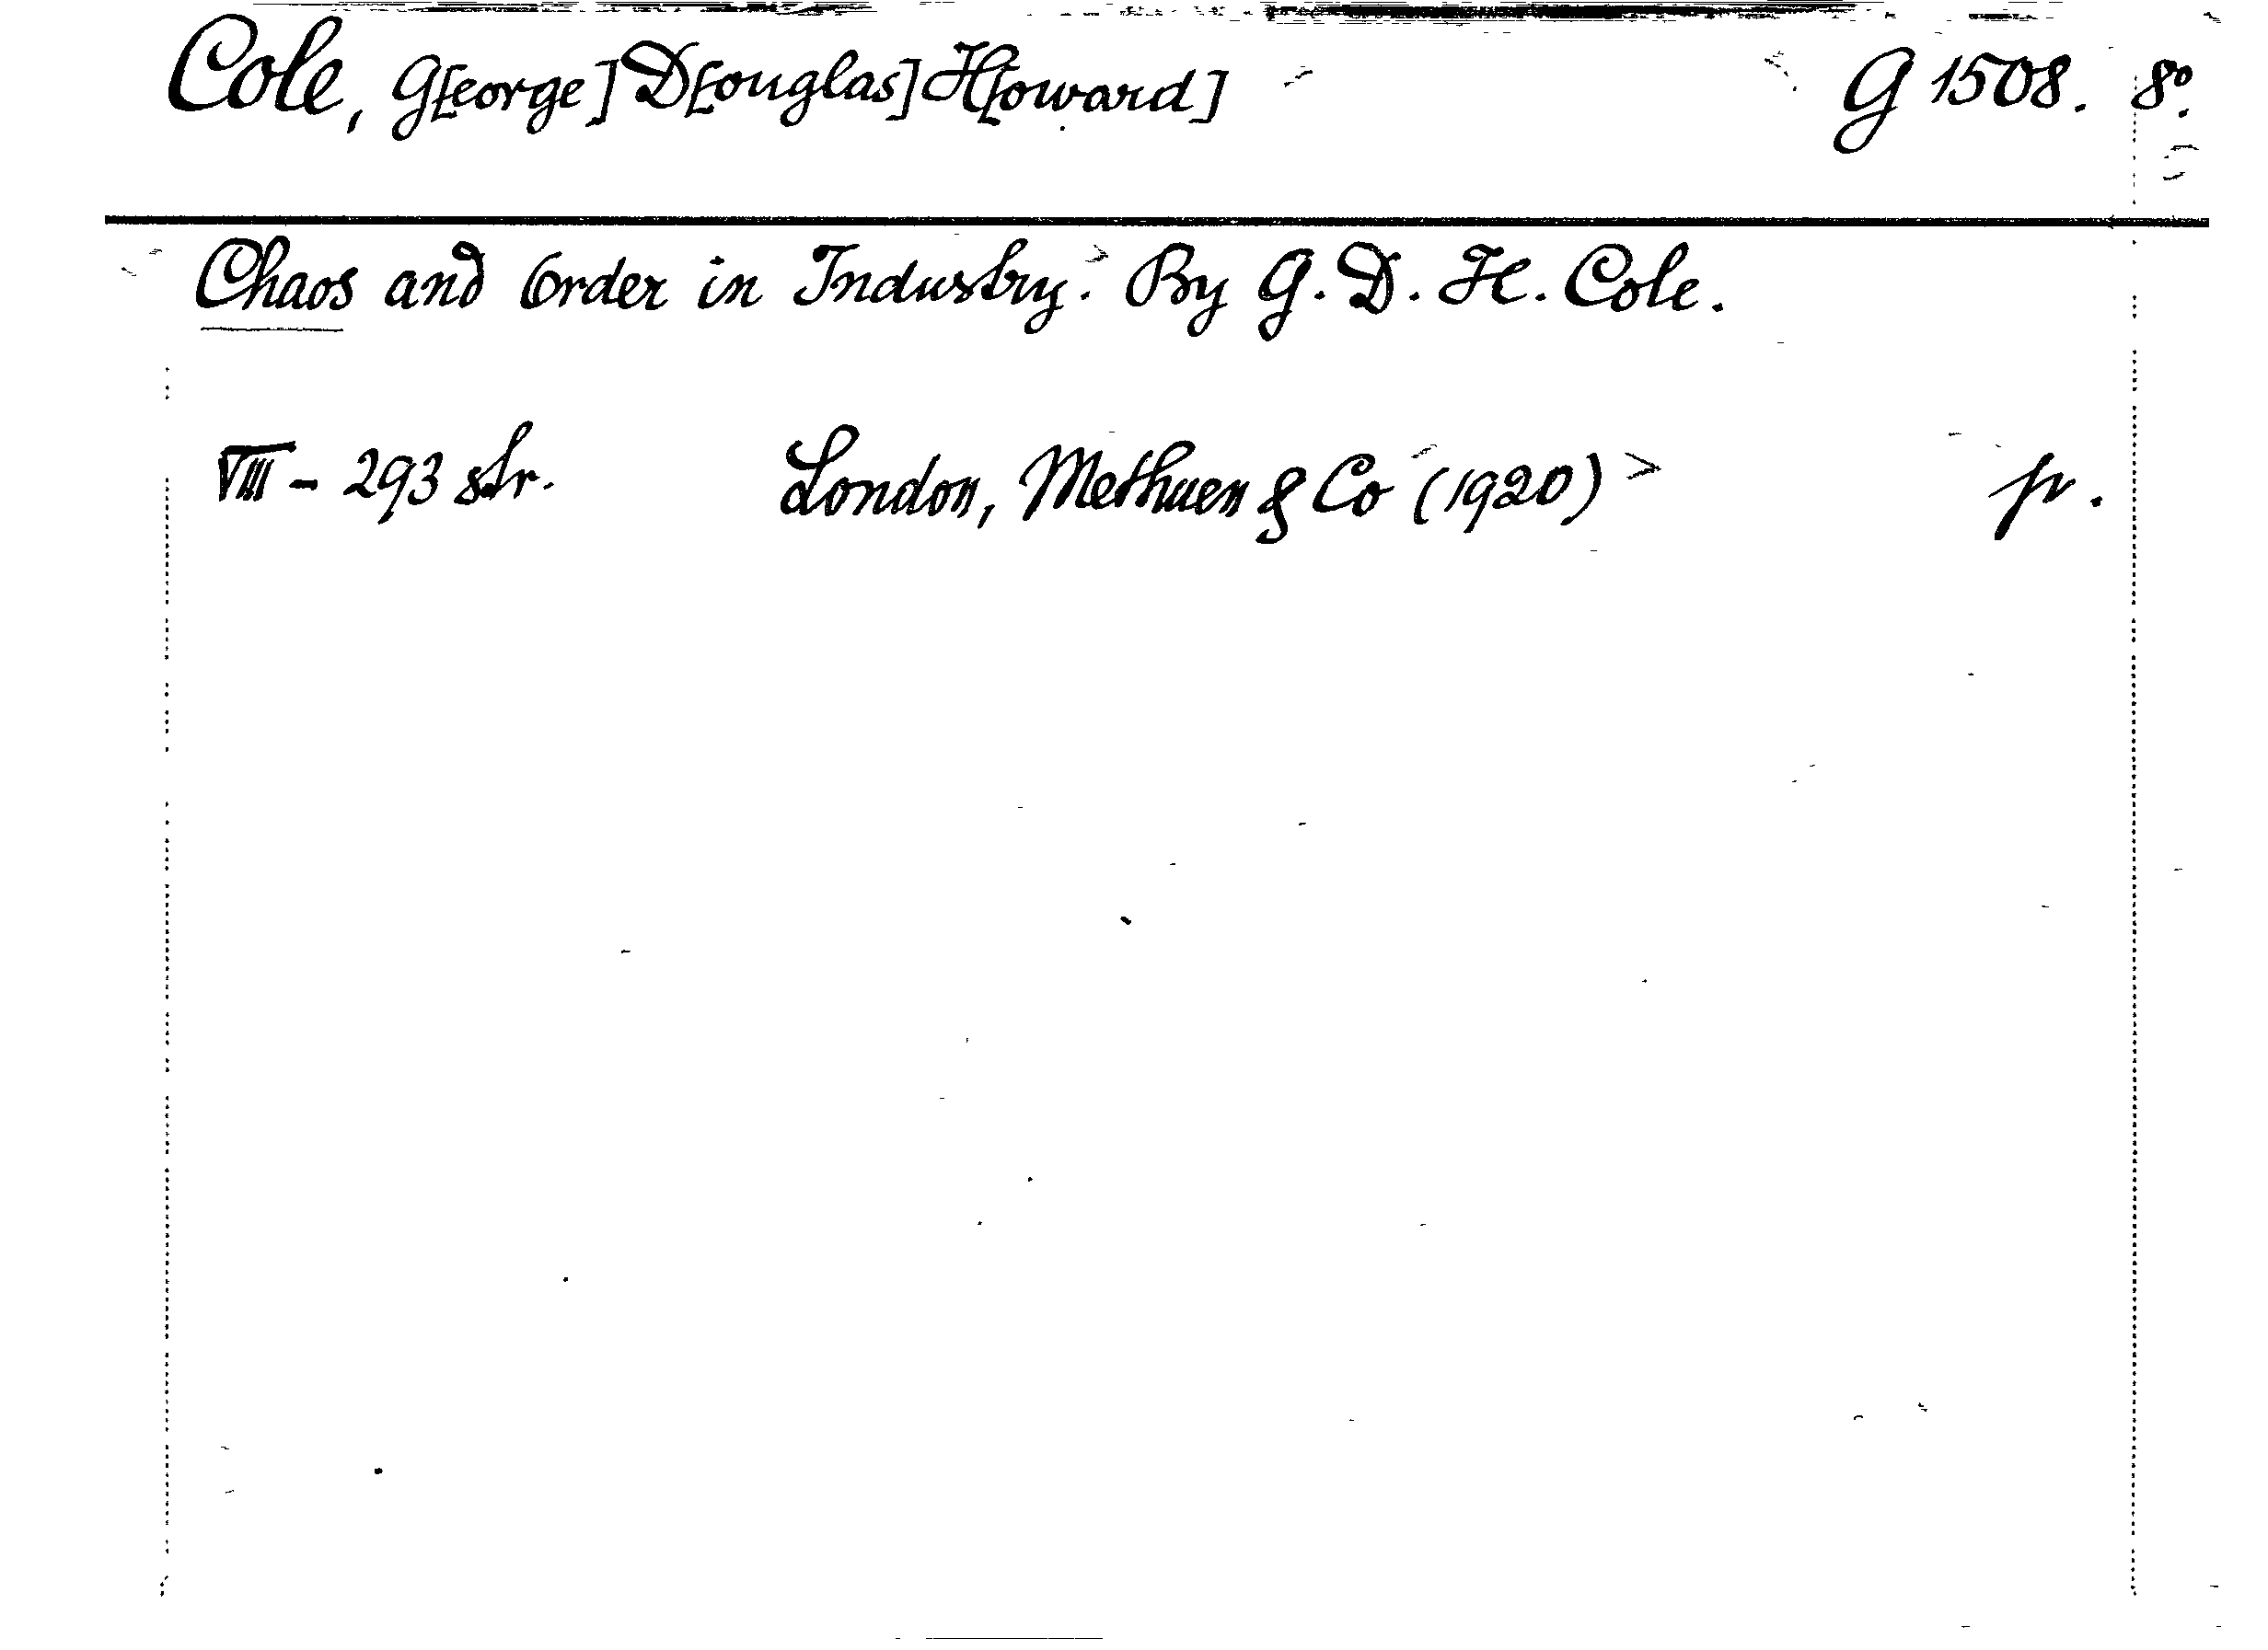 Cole, G[eorge] D[ouglas] H[oward] G 1508. 8°.
Chaos and Order in Industry. By G. D. H. Cole.
VIII - 293 str. London, Methuen & Co (1920)